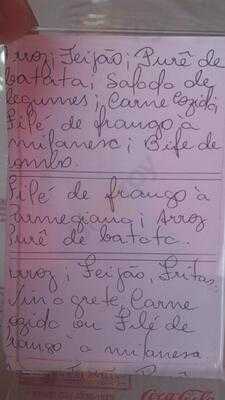 rroz; Feijão; Purê de
batata; Salada de
legumes; Carne cozida;
Filé de frango à
milanesa; Bife de
lombo.
Filé de frango à
armegiana; Arroz
Purê de batata..
rroz; Feijão, Fritas,
Vinagrete, Carne
ozida ou Filé de
frango à milanesa
Coca-Cola